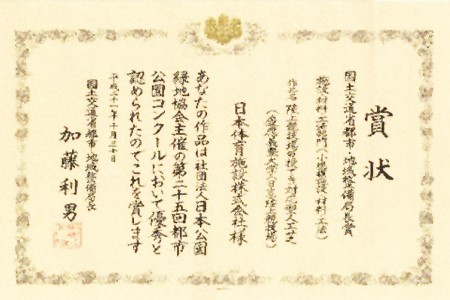 賞状
国土交通省都市・地域整備局長賞
施設材料・工法部門(小規模施設・材料・工法)
作品名 陸上競技場の 人工芝
(慶應義塾大学日吉陸上競技場)
日本体育施設株式会社様
あなたの作品は社団法人日本公園
緑地協会主催の第二十五回都市
公園コンクールにおいて優秀と
認められたのでこれを賞します
平成二十一年十月三十日
国土交通省都市・地域整備局長
加藤利男